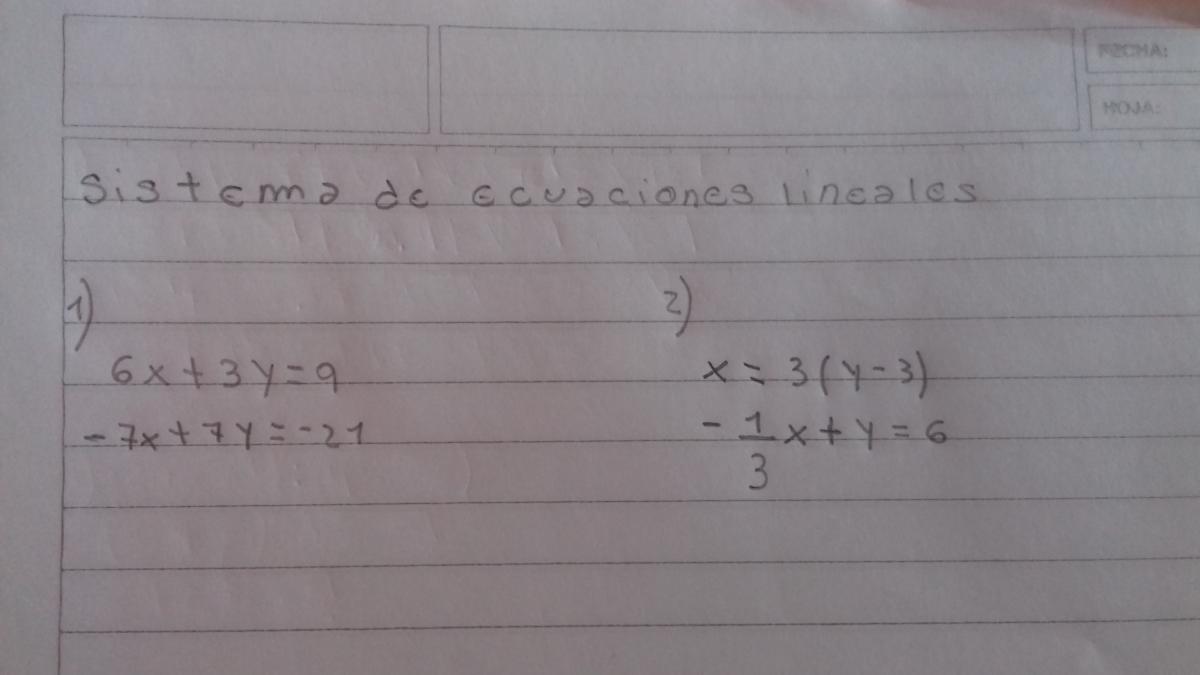 FECHA:
HOJA:
Sistema de ecuaciones lineales
1)
6x+3y=9
-7x+7y=-21
2)
x=3(y-3)
-1/3x+y=6